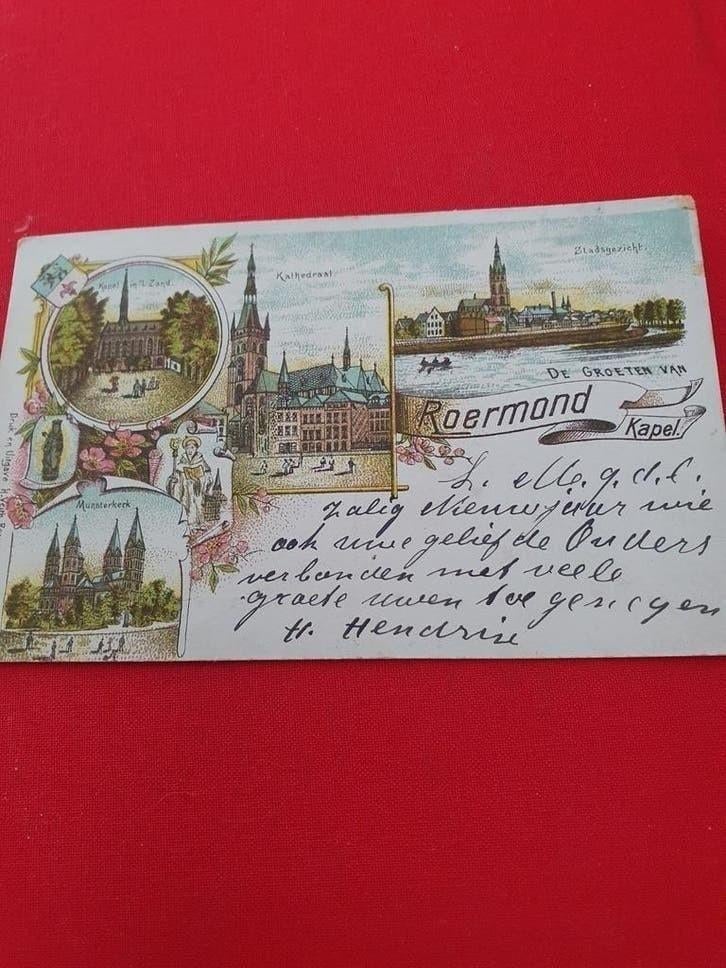 Kapel in 't Zand.
Kathedraal
Stadsgezicht.
DE GROETEN VAN
Roermond
Kapel.
Munsterkerk
Druk en Uitgave H. v.
L. M. g. d. f.
zalig Nieuwjaar wie
ook uwe geliefde Ouders
verbonden met veele
groete uwen toegenegen
H. Hendrix